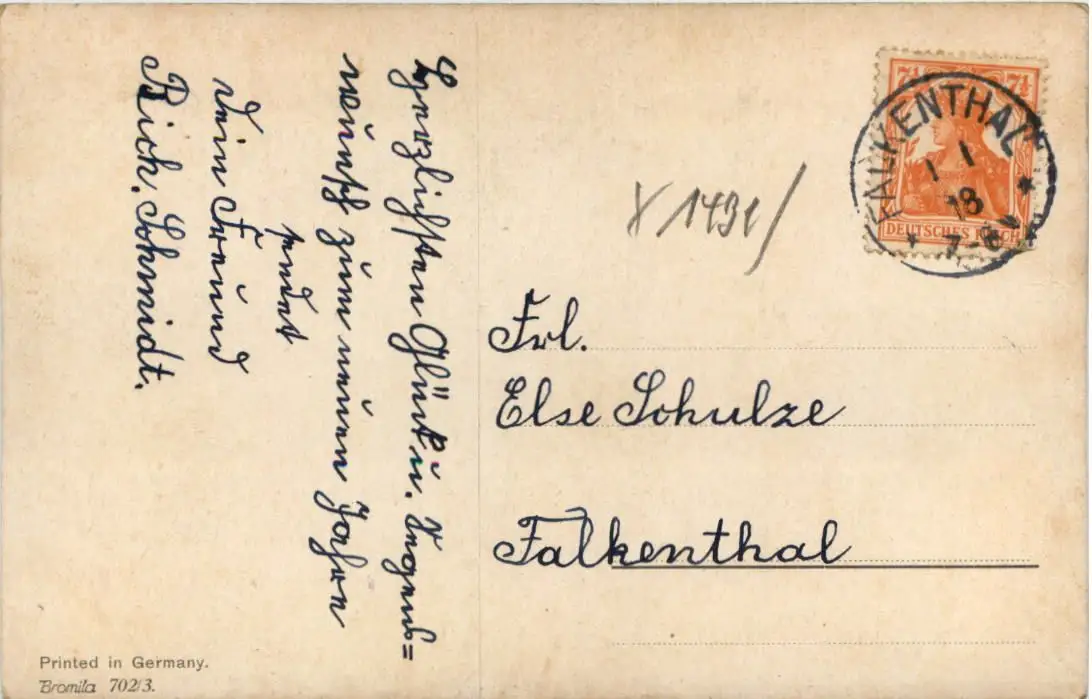 Herzlichsten Glück u. Segens=
wunsch zum neuen Jahre
sendet
Dein Freund
Rich. Schmidt.
7½ 7½
DEUTSCHES REICH
FALKENTHAL
1 1
18
7-8N
X 1491/
Frl.
Else Schulze
Falkenthal
Printed in Germany.
Bromita 702/3.